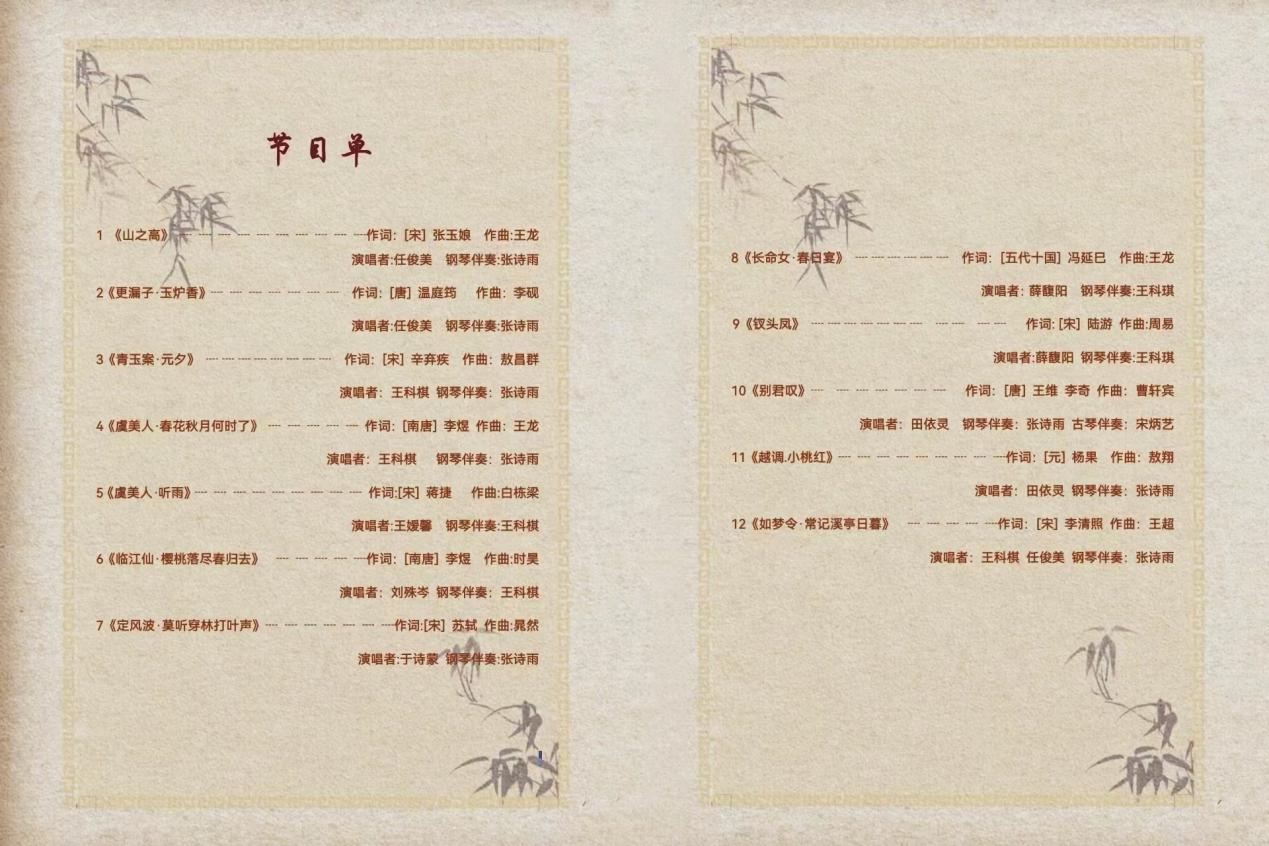 节目单
1 《山之高》— — — — — — — —作词：[宋] 张玉娘 作曲:王龙
演唱者:任俊美 钢琴伴奏:张诗雨
2《更漏子·玉炉香》— — — — — — — 作词：[唐] 温庭筠 作曲：李砚
演唱者:任俊美 钢琴伴奏:张诗雨
3《青玉案·元夕》 — — — — — — — 作词：[宋] 辛弃疾 作曲：敖昌群
演唱者：王科棋 钢琴伴奏：张诗雨
4《虞美人·春花秋月何时了》 — — — — — 作词：[南唐] 李煜 作曲：王龙
演唱者：王科棋 钢琴伴奏：张诗雨
5《虞美人·听雨》— — — — — — — — — 作词:[宋] 蒋捷 作曲:白栋梁
演唱者:王媛馨 钢琴伴奏:王科棋
6《临江仙·樱桃落尽春归去》 — — — — —作词：[南唐] 李煜 作曲:时昊
演唱者：刘殊岑 钢琴伴奏：王科棋
7《定风波·莫听穿林打叶声》— — — — — — —作词:[宋] 苏轼 作曲:晁然
演唱者:于诗蒙 钢琴伴奏:张诗雨
8《长命女·春日宴》 — — — — — 作词：[五代十国] 冯延巳 作曲:王龙
演唱者：薛馥阳 钢琴伴奏:王科琪
9《钗头凤》 — — — — — — — — — 作词: [宋] 陆游 作曲:周易
演唱者:薛馥阳 钢琴伴奏:王科琪
10《别君叹》— — — — — — — 作词：[唐] 王维 李奇 作曲：曹轩宾
演唱者：田依灵 钢琴伴奏：张诗雨 古琴伴奏：宋炳艺
11《越调.小桃红》— — — — — — — — —作词：[元] 杨果 作曲：敖翔
演唱者：田依灵 钢琴伴奏：张诗雨
12《如梦令·常记溪亭日暮》 — — — — —作词：[宋] 李清照 作曲：王超
演唱者：王科棋 任俊美 钢琴伴奏：张诗雨